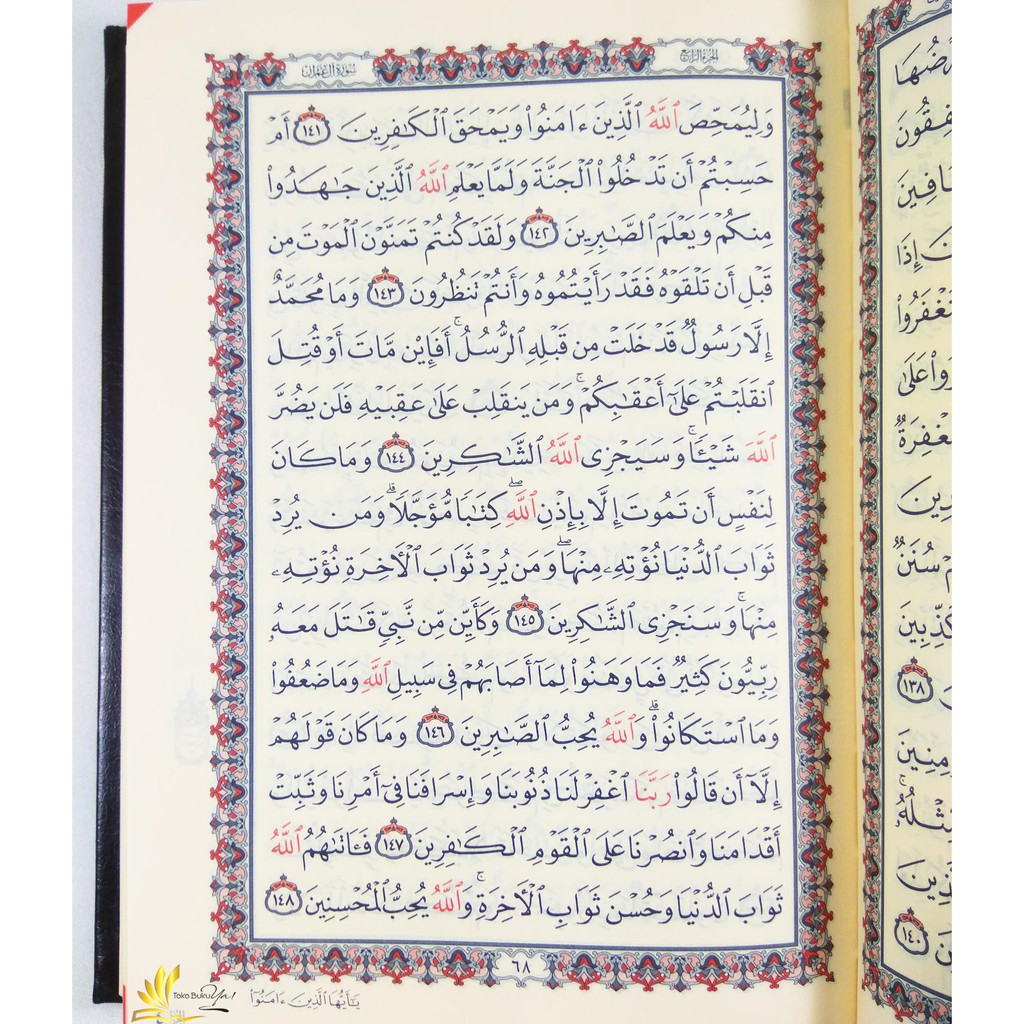 الجزء الرابع
سورة آل عمران
وَلِيُمَحِّصَ ٱللَّهُ ٱلَّذِينَ ءَامَنُوا۟ وَيَمْحَقَ ٱلْكَـٰفِرِينَ ١٤١ أَمْ
حَسِبْتُمْ أَن تَدْخُلُوا۟ ٱلْجَنَّةَ وَلَمَّا يَعْلَمِ ٱللَّهُ ٱلَّذِينَ جَـٰهَدُوا۟
مِنكُمْ وَيَعْلَمَ ٱلصَّـٰبِرِينَ ١٤٢ وَلَقَدْ كُنتُمْ تَمَنَّوْنَ ٱلْمَوْتَ مِن
قَبْلِ أَن تَلْقَوْهُ فَقَدْ رَأَيْتُمُوهُ وَأَنتُمْ تَنظُرُونَ ١٤٣ وَمَا مُحَمَّدٌ
إِلَّا رَسُولٌ قَدْ خَلَتْ مِن قَبْلِهِ ٱلرُّسُلُ ۚ أَفَإِي۟ن مَّاتَ أَوْ قُتِلَ
ٱنقَلَبْتُمْ عَلَىٰٓ أَعْقَـٰبِكُمْ ۚ وَمَن يَنقَلِبْ عَلَىٰ عَقِبَيْهِ فَلَن يَضُرَّ
ٱللَّهَ شَيْـًٔا ۗ وَسَيَجْزِى ٱللَّهُ ٱلشَّـٰكِرِينَ ١٤٤ وَمَا كَانَ
لِنَفْسٍ أَن تَمُوتَ إِلَّا بِإِذْنِ ٱللَّهِ ۖ كِتَـٰبًا مُّؤَجَّلًا ۗ وَمَن يُرِدْ
ثَوَابَ ٱلدُّنْيَا نُؤْتِهِۦ مِنْهَا ۖ وَمَن يُرِدْ ثَوَابَ ٱلْـَٔاخِرَةِ نُؤْتِهِۦ
مِنْهَا ۚ وَسَنَجْزِى ٱلشَّـٰكِرِينَ ١٤٥ وَكَأَيِّن مِّن نَّبِىٍّ قَـٰتَلَ مَعَهُۥ
رِبِّيُّونَ كَثِيرٌ فَمَا وَهَنُوا۟ لِمَآ أَصَابَهُمْ فِى سَبِيلِ ٱللَّهِ وَمَا ضَعُفُوا۟
وَمَا ٱسْتَكَانُوا۟ ۗ وَٱللَّهُ يُحِبُّ ٱلصَّـٰبِرِينَ ١٤٦ وَمَا كَانَ قَوْلَهُمْ
إِلَّآ أَن قَالُوا۟ رَبَّنَا ٱغْفِرْ لَنَا ذُنُوبَنَا وَإِسْرَافَنَا فِىٓ أَمْرِنَا وَثَبِّتْ
أَقْدَامَنَا وَٱنصُرْنَا عَلَى ٱلْقَوْمِ ٱلْكَـٰفِرِينَ ١٤٧ فَـَٔاتَىٰهُمُ ٱللَّهُ
ثَوَابَ ٱلدُّنْيَا وَحُسْنَ ثَوَابِ ٱلْـَٔاخِرَةِ ۗ وَٱللَّهُ يُحِبُّ ٱلْمُحْسِنِينَ ١٤٨
٦٨
يَـٰٓأَيُّهَا ٱلَّذِينَ ءَامَنُوٓا۟
Toko Buku Ya!
إِذَا
سُنَنٌ
١٣٨
١٤٠